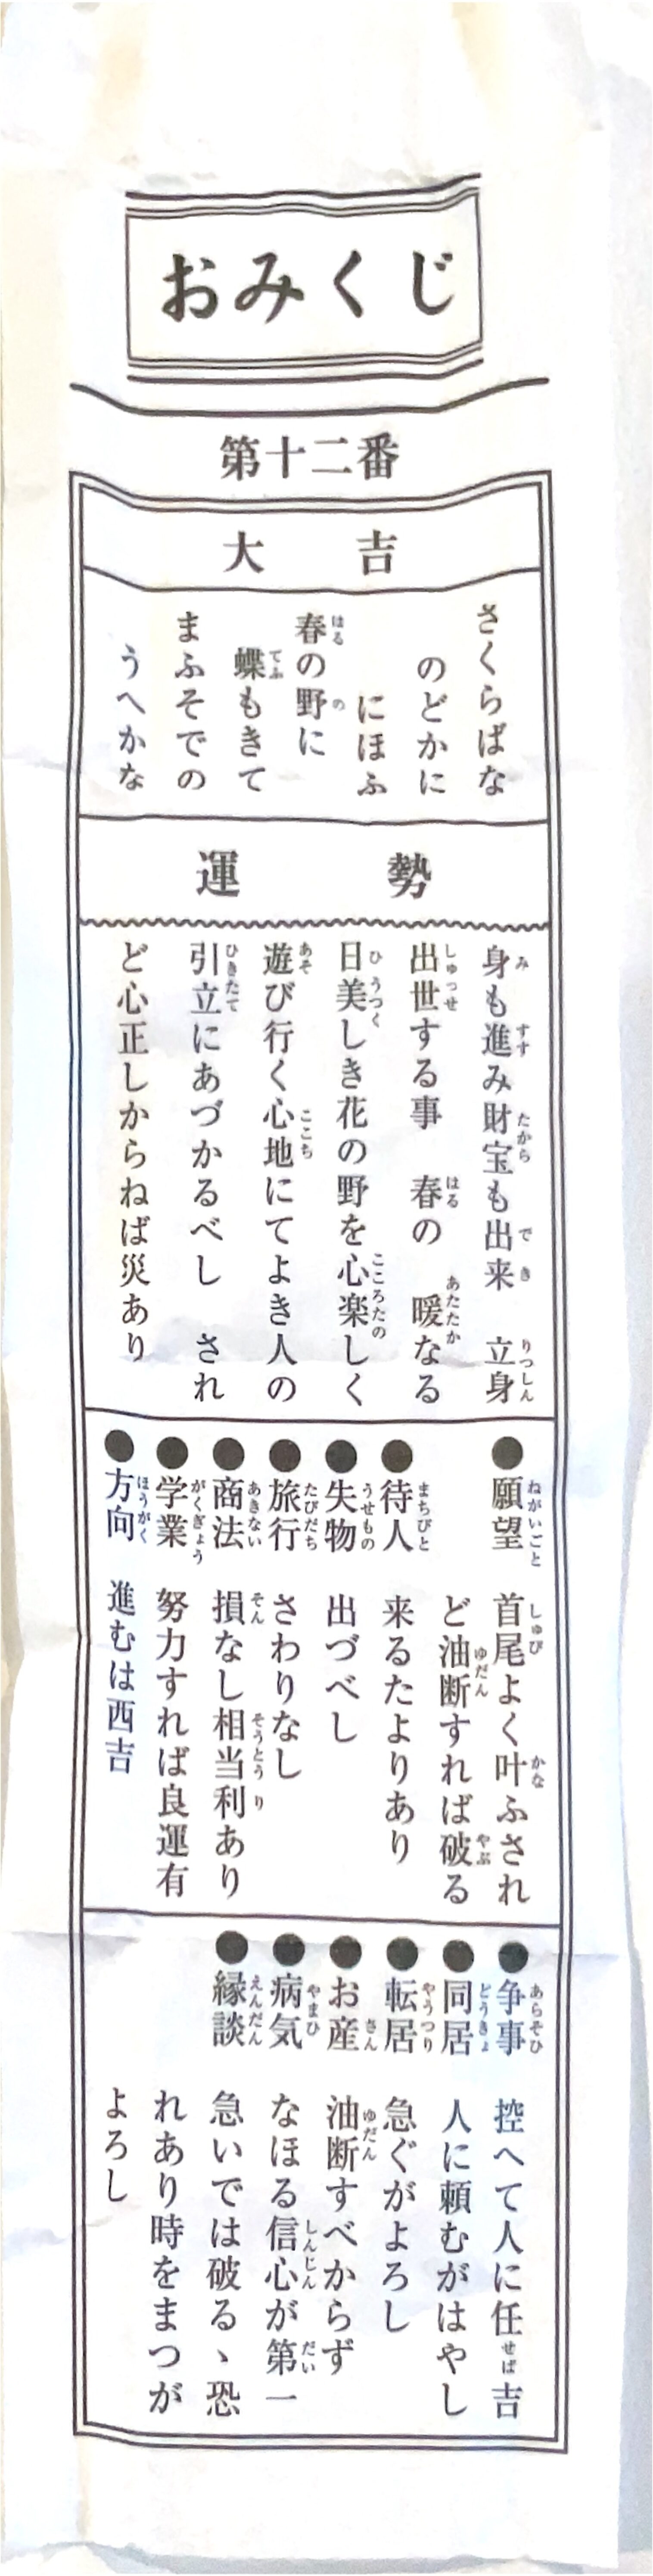 おみくじ
第十二番
大吉
さくらばな
のどかに
にほふ
春の野に
蝶もきて
まふそでの
うへかな
運勢
身も進み財宝も出来　立身
出世する事　春の　暖なる
日美しき花の野を心楽しく
遊び行く心地にてよき人の
引立にあづかるべし　され
ど心正しからねば災あり
●願望　首尾よく叶ふされ
ど油断すれば破る
●待人　来るたよりあり
●失物　出づべし
●旅行　さわりなし
●商法　損なし相当利あり
●学業　努力すれば良運有
●方向　進むは西吉
●争事　控へて人に任せば吉
●同居　人に頼むがはやし
●転居　急ぐがよろし
●お産　油断すべからず
●病気　なほる信心が第一
●縁談　急いでは破るヽ恐
れあり時をまつが
よろし